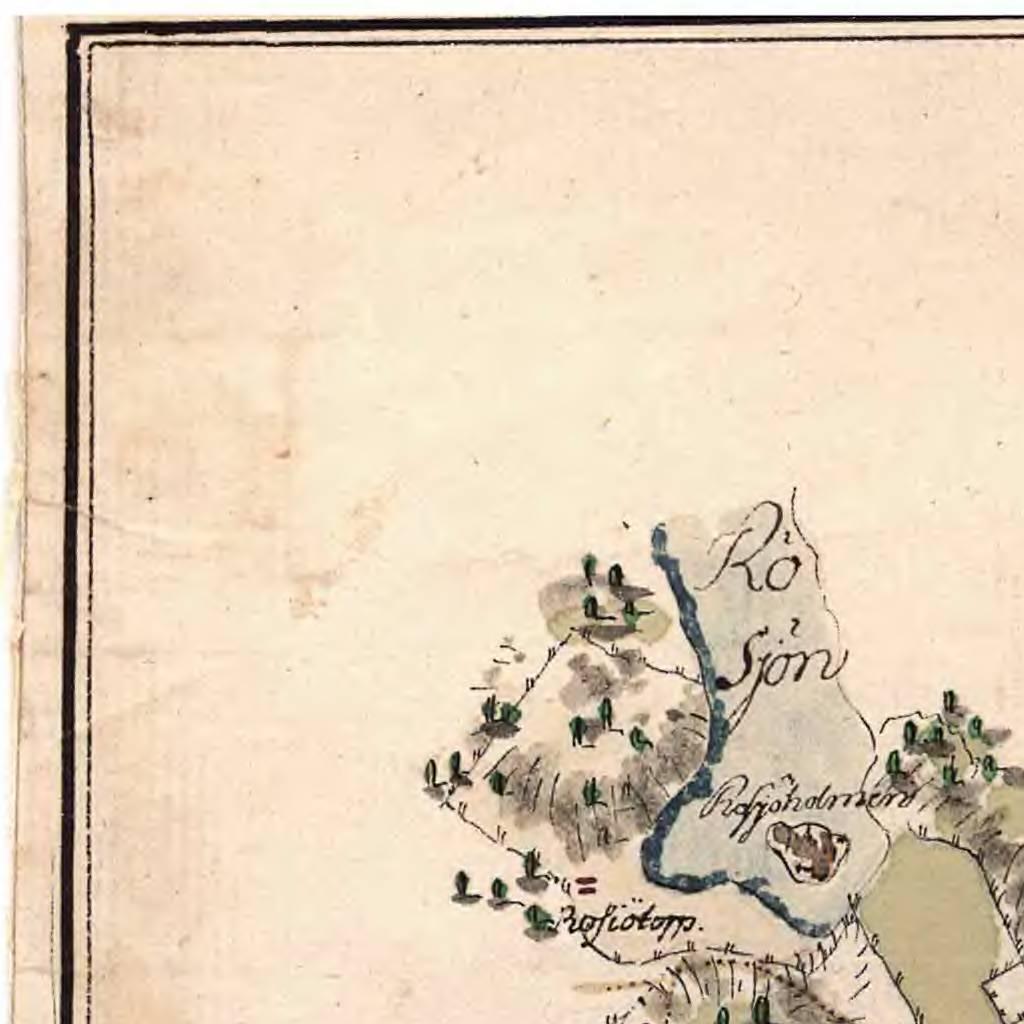 Rö
Sjön
Rösjöholmen
Rosiötorp.